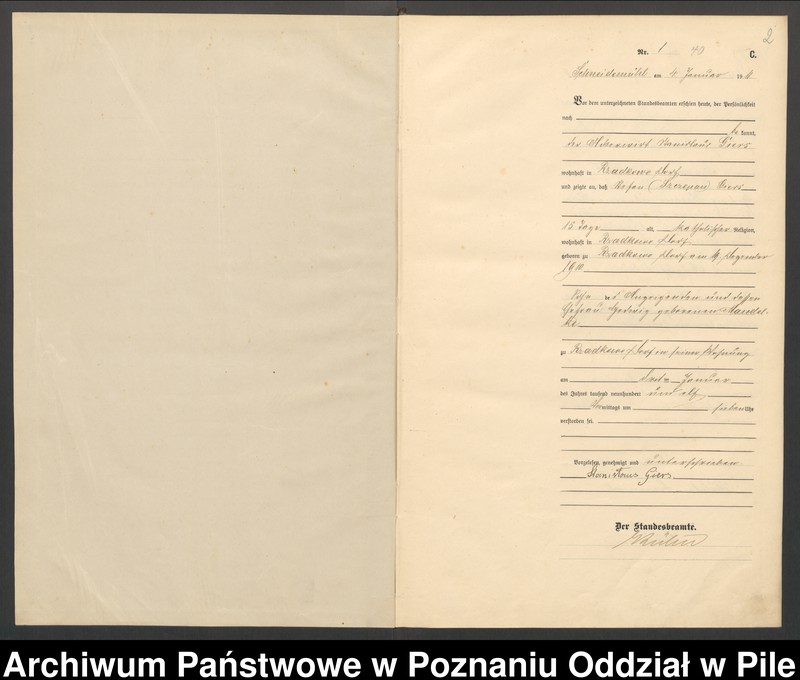 2
Nr. 1
C.
Schneidemühl am 4 Januar 19 11
Vor dem unterzeichneten Standesbeamten erschien heute, der Persönlichkeit
nach
be kannt,
der Ackerwirt Stanislaus Goers
wohnhaft in Radkowo Dorf
und zeigte an, daß Stefan
15 Tage alt, katholischer Religion,
wohnhaft in Radkowo Dorf
geboren zu Radkowo Dorf am Dezember
1910
Sohn des Anzeigenden und dessen
Ehefrau Hedwig geborenen Mandel-
ke
zu Radkowo Dorf in seiner Wohnung
am Januar
des Jahres tausend neunhundert und elf
mittags um sieben Uhr
verstorben sei.
Vorgelesen, genehmigt und unterschrieben
Stanislaus Goers
Der Standesbeamte.
Archiwum Państwowe w Poznaniu Oddział w Pile